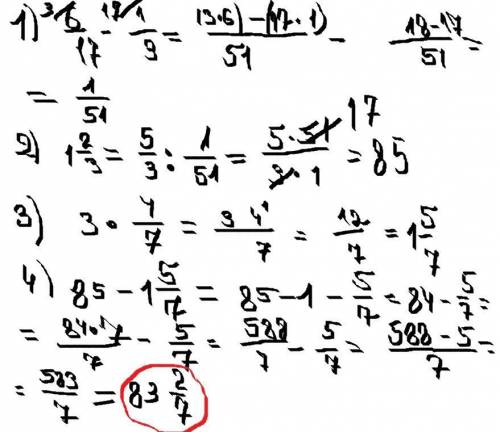 1) ³6/17 - ¹⁷1/3 = (3·6) - (17·1)/51 - 18-17/51 =
= 1/51
2) 1 2/3 = 5/3 : 1/51 = 5·51/3·1 = 85 17
3) 3 · 4/7 = 3 4¹/7 = 12/7 = 1 5/7
4) 85 - 1 5/7 = 85 - 1 - 5/7 = 84 - 5/7 =
= 84·7/7 - 5/7 = 588/7 - 5/7 = 588 - 5/7 =
= 583/7 = 83 2/7